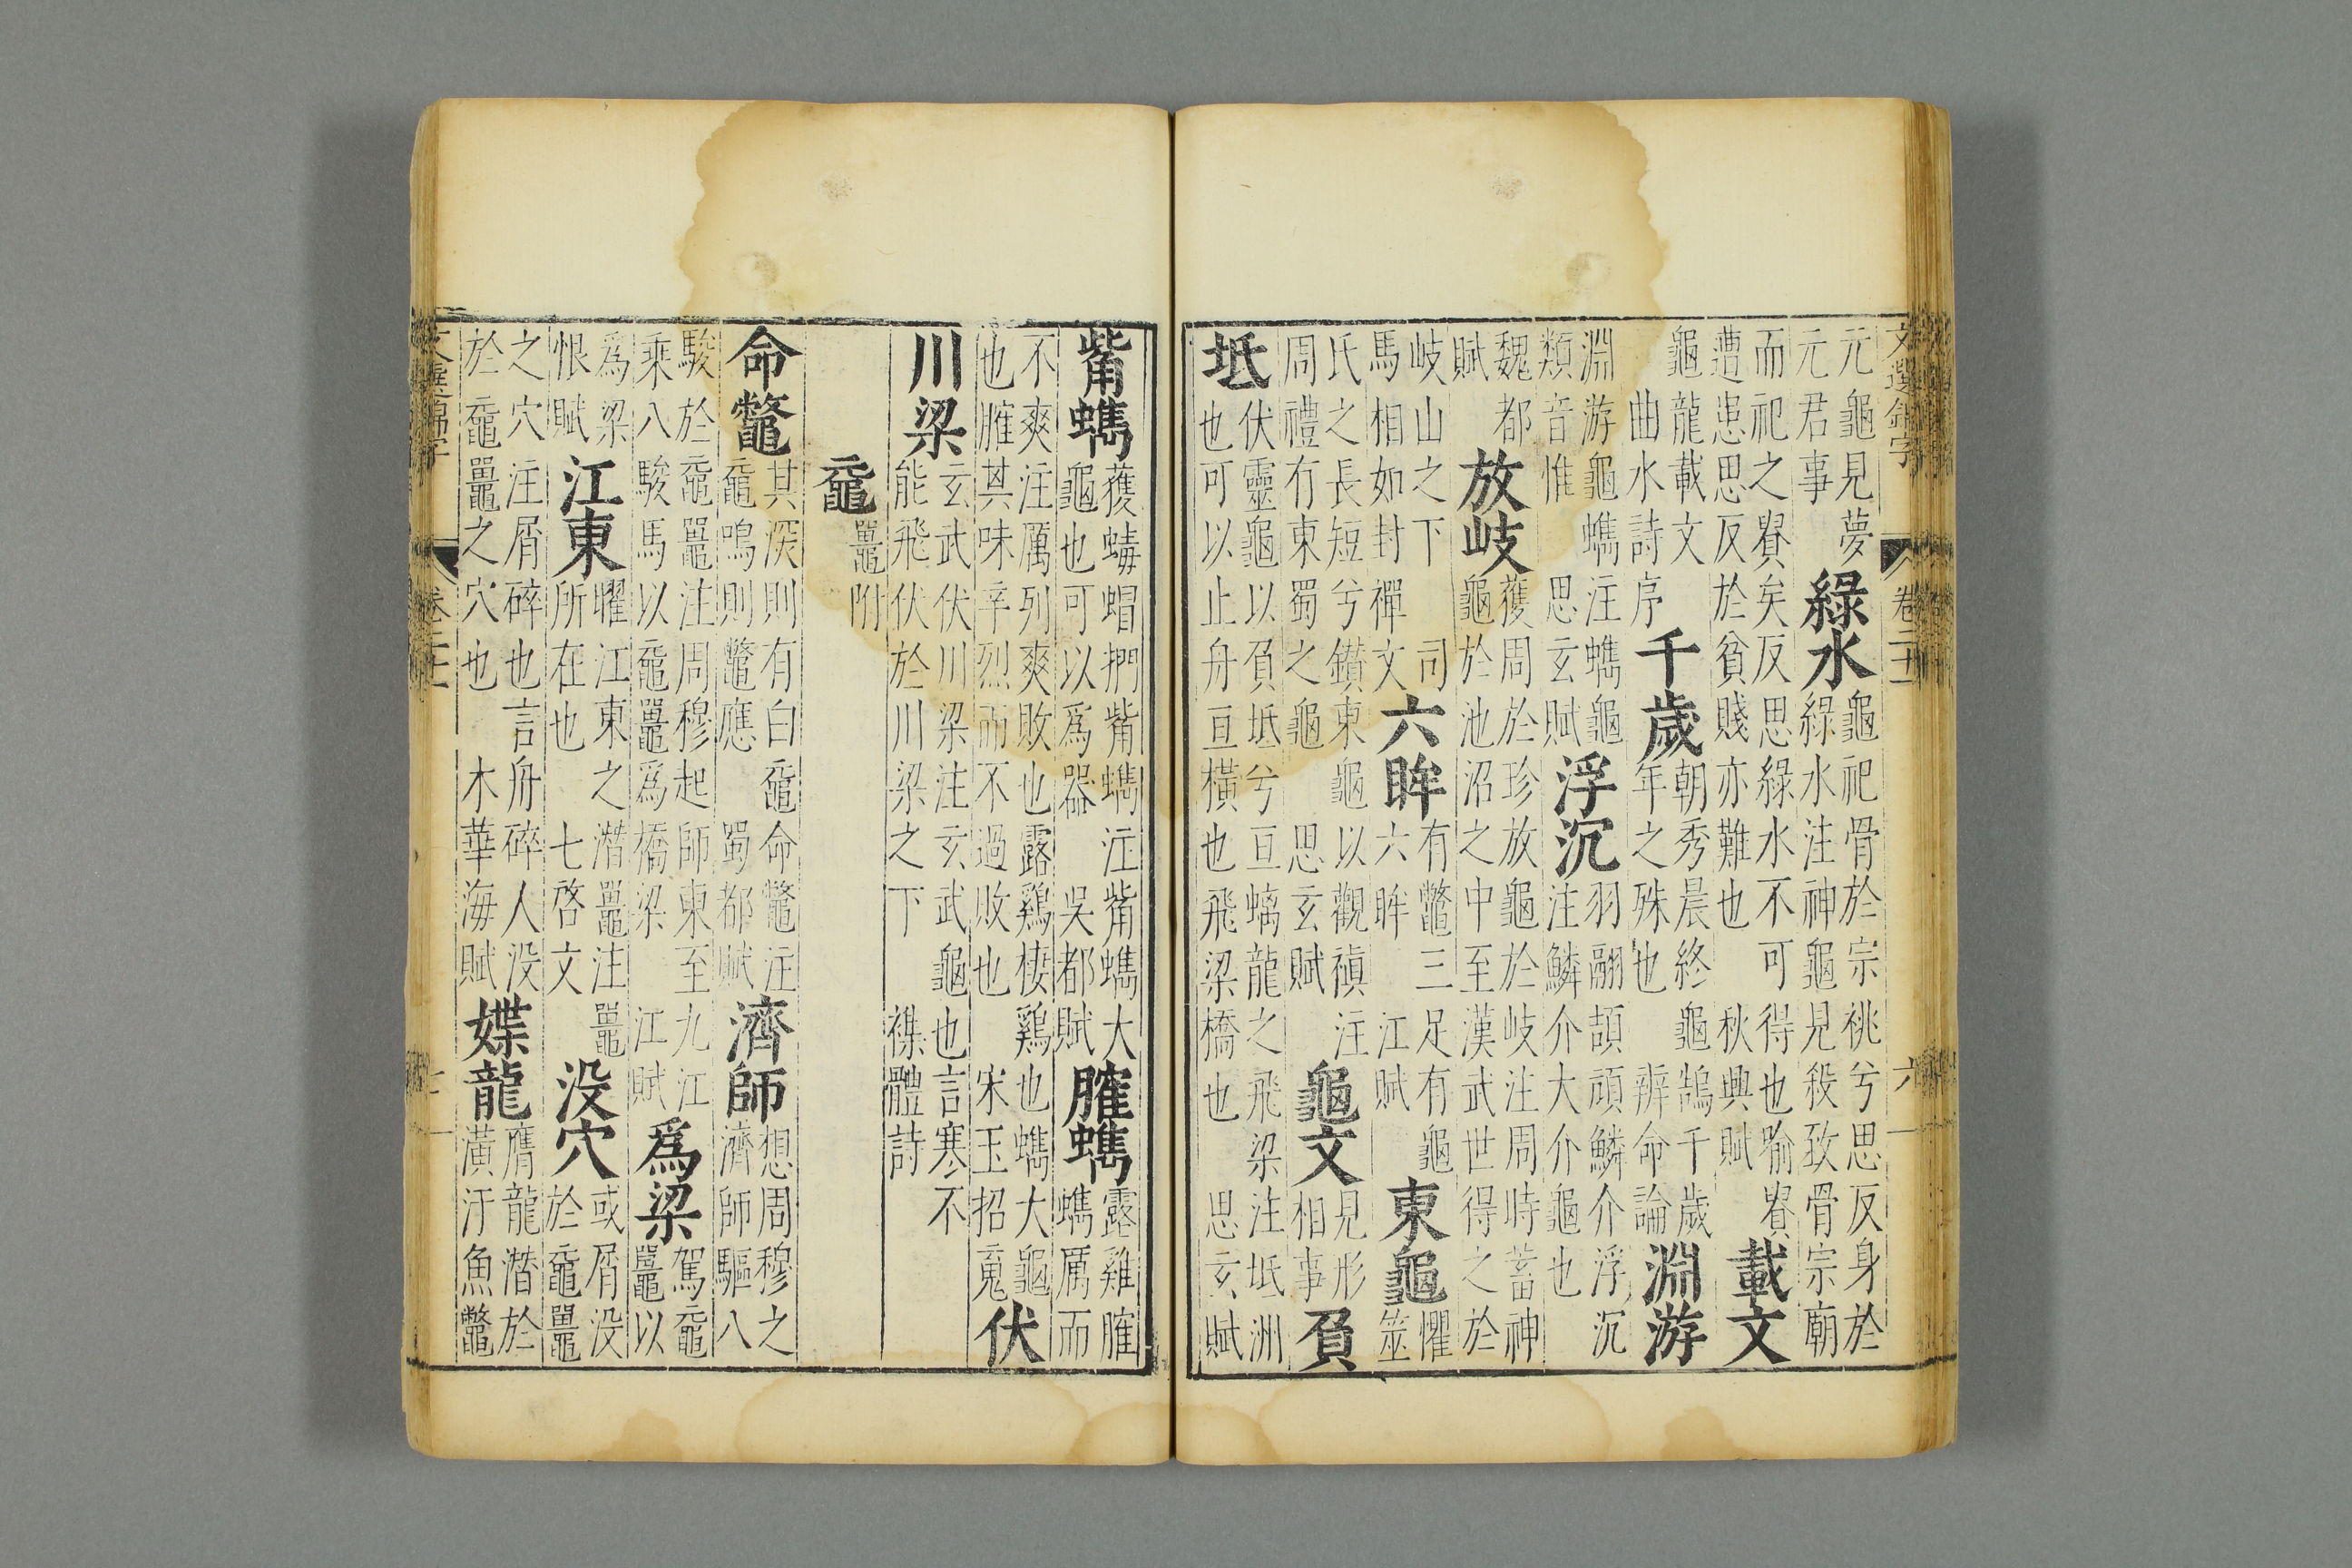 文選錦字 卷二十一 六
元龜見夢元君事綠水龜祀骨於宗祧兮思反身於綠水注神龜見殺致骨宗廟
而祀之貴矣反思綠水不可得也喻貴遭患思反於貧賤亦難也 秋興賦載文
龜龍載文曲水詩序千歲朝秀晨終 龜鵠千歲年之殊也 辨命論淵游
淵游龜蠵注蠵龜類音惟 思玄賦浮沉羽翮頡頏鱗介浮沉注鱗介大介龜也
魏都賦放岐蒦周於珍放龜於岐注周時蓄神龜於池沼之中至漢武世得之於
岐山之下 司馬相如封禪文六眸有鱉三足有龜六眸 江賦東龜懼筮
氏之長短兮鑚東龜以觀禎注周禮有東蜀之龜 思玄賦龜文見形相事負
坻伏靈龜以負坻兮亘螭龍之飛梁注坻洲也可以止舟亘橫也飛梁橋也 思玄賦
觜蠵蒦蝳蝐捫觜蠵注觜蠵大龜也可以爲器 吳都賦臛蠵露雞臛蠵厲而
不爽注厲列爽敗也露鷄棲鷄也蠵大龜也臛其味辛烈而不過敗也 宋玉招䰟伏
川梁玄武伏川梁注玄武龜也言寒不能飛伏於川梁之下 襍體詩
黿鼉附
命鱉其深則有白黿命鱉注黿鳴則鱉應 蜀都賦濟師想周穆之濟師驅八
駿於黿鼉注周穆起師東至九江乘八駿馬以黿鼉爲橋梁 江賦爲梁駕黿鼉以
爲梁恨賦江東曜江東之潛鼉注鼉所在也 七啓文没穴或屑没於黿鼉
之穴注屑碎也言舟碎人没於黿鼉之穴也 木華海賦媟龍膺龍潛於潢汙魚鱉
文選錦字